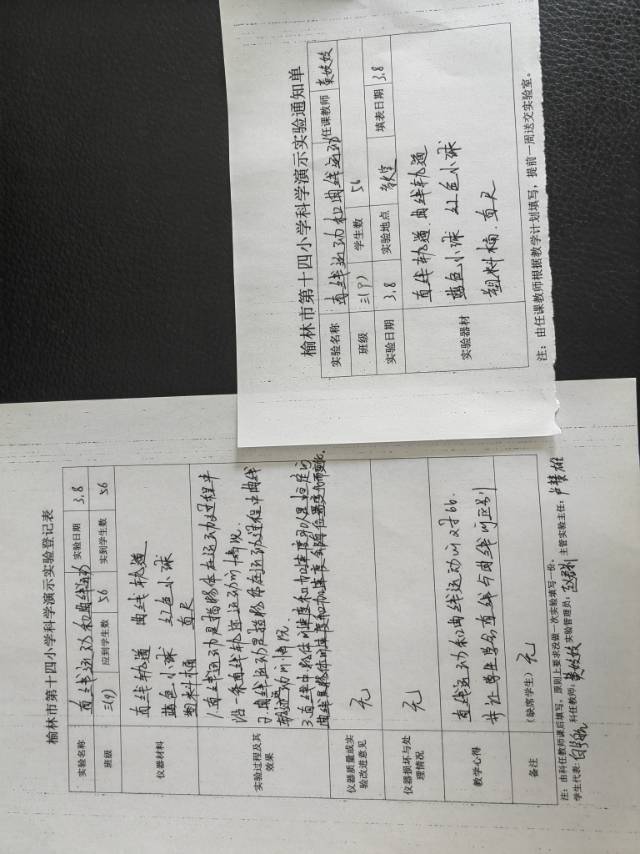 榆林市第十四小学科学演示实验通知单
实验名称 直线运动和曲线运动 任课教师
班级 三(9) 学生数 56
实验日期 3.8 实验地点 填表日期 3.8
实验器材
直线轨道 曲线轨道
蓝色小球 红色小球
塑料桶 直尺
注：由任课教师根据教学计划填写，提前一周送交实验室。
榆林市第十四小学科学演示实验登记表
实验名称 直线运动和曲线运动 实验日期 3.8
班级 三(9) 应到学生数 56 实到学生数 56
仪器材料
直线轨道 曲线轨道
蓝色小球 红色小球
塑料桶 直尺
实验过程及其效果
1.直线运动是指物体在运动过程中
沿一条直线轨迹运动的情况.
2.曲线运动是指物体在运动过程中曲线
轨迹运动的情况.
仪器质量或实验改进意见 无
仪器损坏与处理情况 无
教学心得
直线运动和曲线运动的对比.
并让学生学会直线与曲线的区别
备注 （缺席学生） 无
注：由科任教师课后填写，原则上要求没做一次实验填写一份。
学生代表: 科任教师: 实验管理员: 主管实验主任: